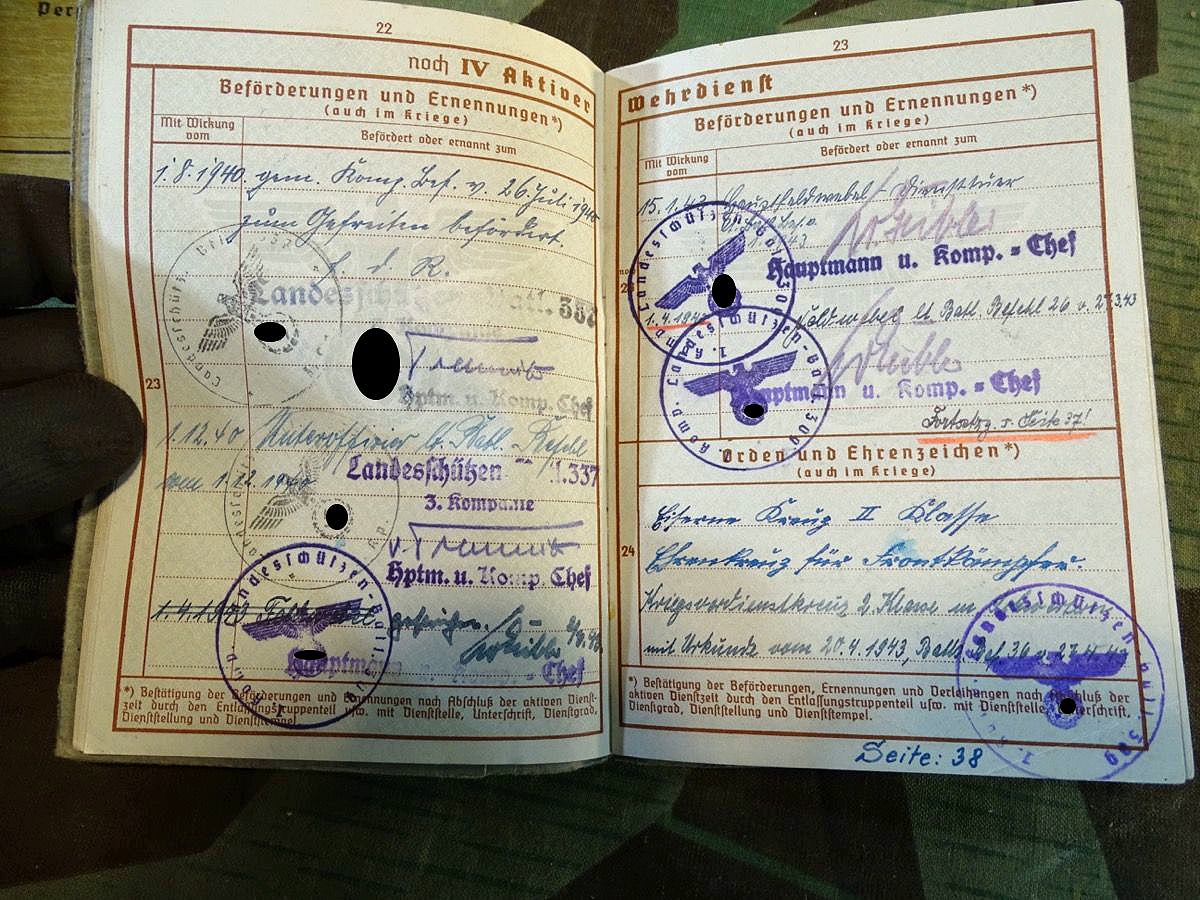 22
noch IV Aktiver
Beförderungen und Ernennungen*)
(auch im Kriege)
Mit Wirkung
vom
Befördert oder ernannt zum
1.8.1940. gem. Komp. Bef. v. 26 Juli 1940
zum Gefreiten befördert.
d. R.
Landesschützen Batl. 337
Hptm. u. Komp. Chef
23
1.12.40 Unteroffizier lt. Batl. - Befehl
vom 1.12.1940
Landesschützen 1.337
3. Kompanie
Hptm. u. Komp. Chef
Landesschützen-Batl. 309
1.4.1943 gestrichen.
Hauptmann u. Komp. - Chef
*) Bestätigung der Beförderungen und Ernennungen nach Abschluß der aktiven Dienst-
zeit durch den Entlassungstruppenteil usw. mit Dienststelle, Unterschrift, Dienstgrad,
Dienststellung und Dienststempel.
23
Wehrdienst
Beförderungen und Ernennungen*)
(auch im Kriege)
Mit Wirkung
vom
Befördert oder ernannt zum
15.1.43 Hauptfeldwebel - Diensttuer
Landesschützen-Batl. 309
Hauptmann u. Komp. - Chef
1.4.1943 Feldwebel lt Batl. Befehl 26 v. 27.3.43
1. Komp. Landesschützen-Batl. 309
Hauptmann u. Komp. - Chef
Fortsetzg. s. Seite 37!
Orden und Ehrenzeichen*)
(auch im Kriege)
24
Eiserne Kreuz II Klasse
Ehrenkreuz für Frontkämpfer.
Kriegsverdienstkreuz 2. Klasse m. Schwertern
mit Urkunde vom 20.4.1943, Batls. Bef. 36 v. 27.4.43
*) Bestätigung der Beförderungen, Ernennungen und Verleihungen nach Abschluß der
aktiven Dienstzeit durch den Entlassungstruppenteil usw. mit Dienststelle, Unterschrift,
Dienstgrad, Dienststellung und Dienststempel.
Seite: 38